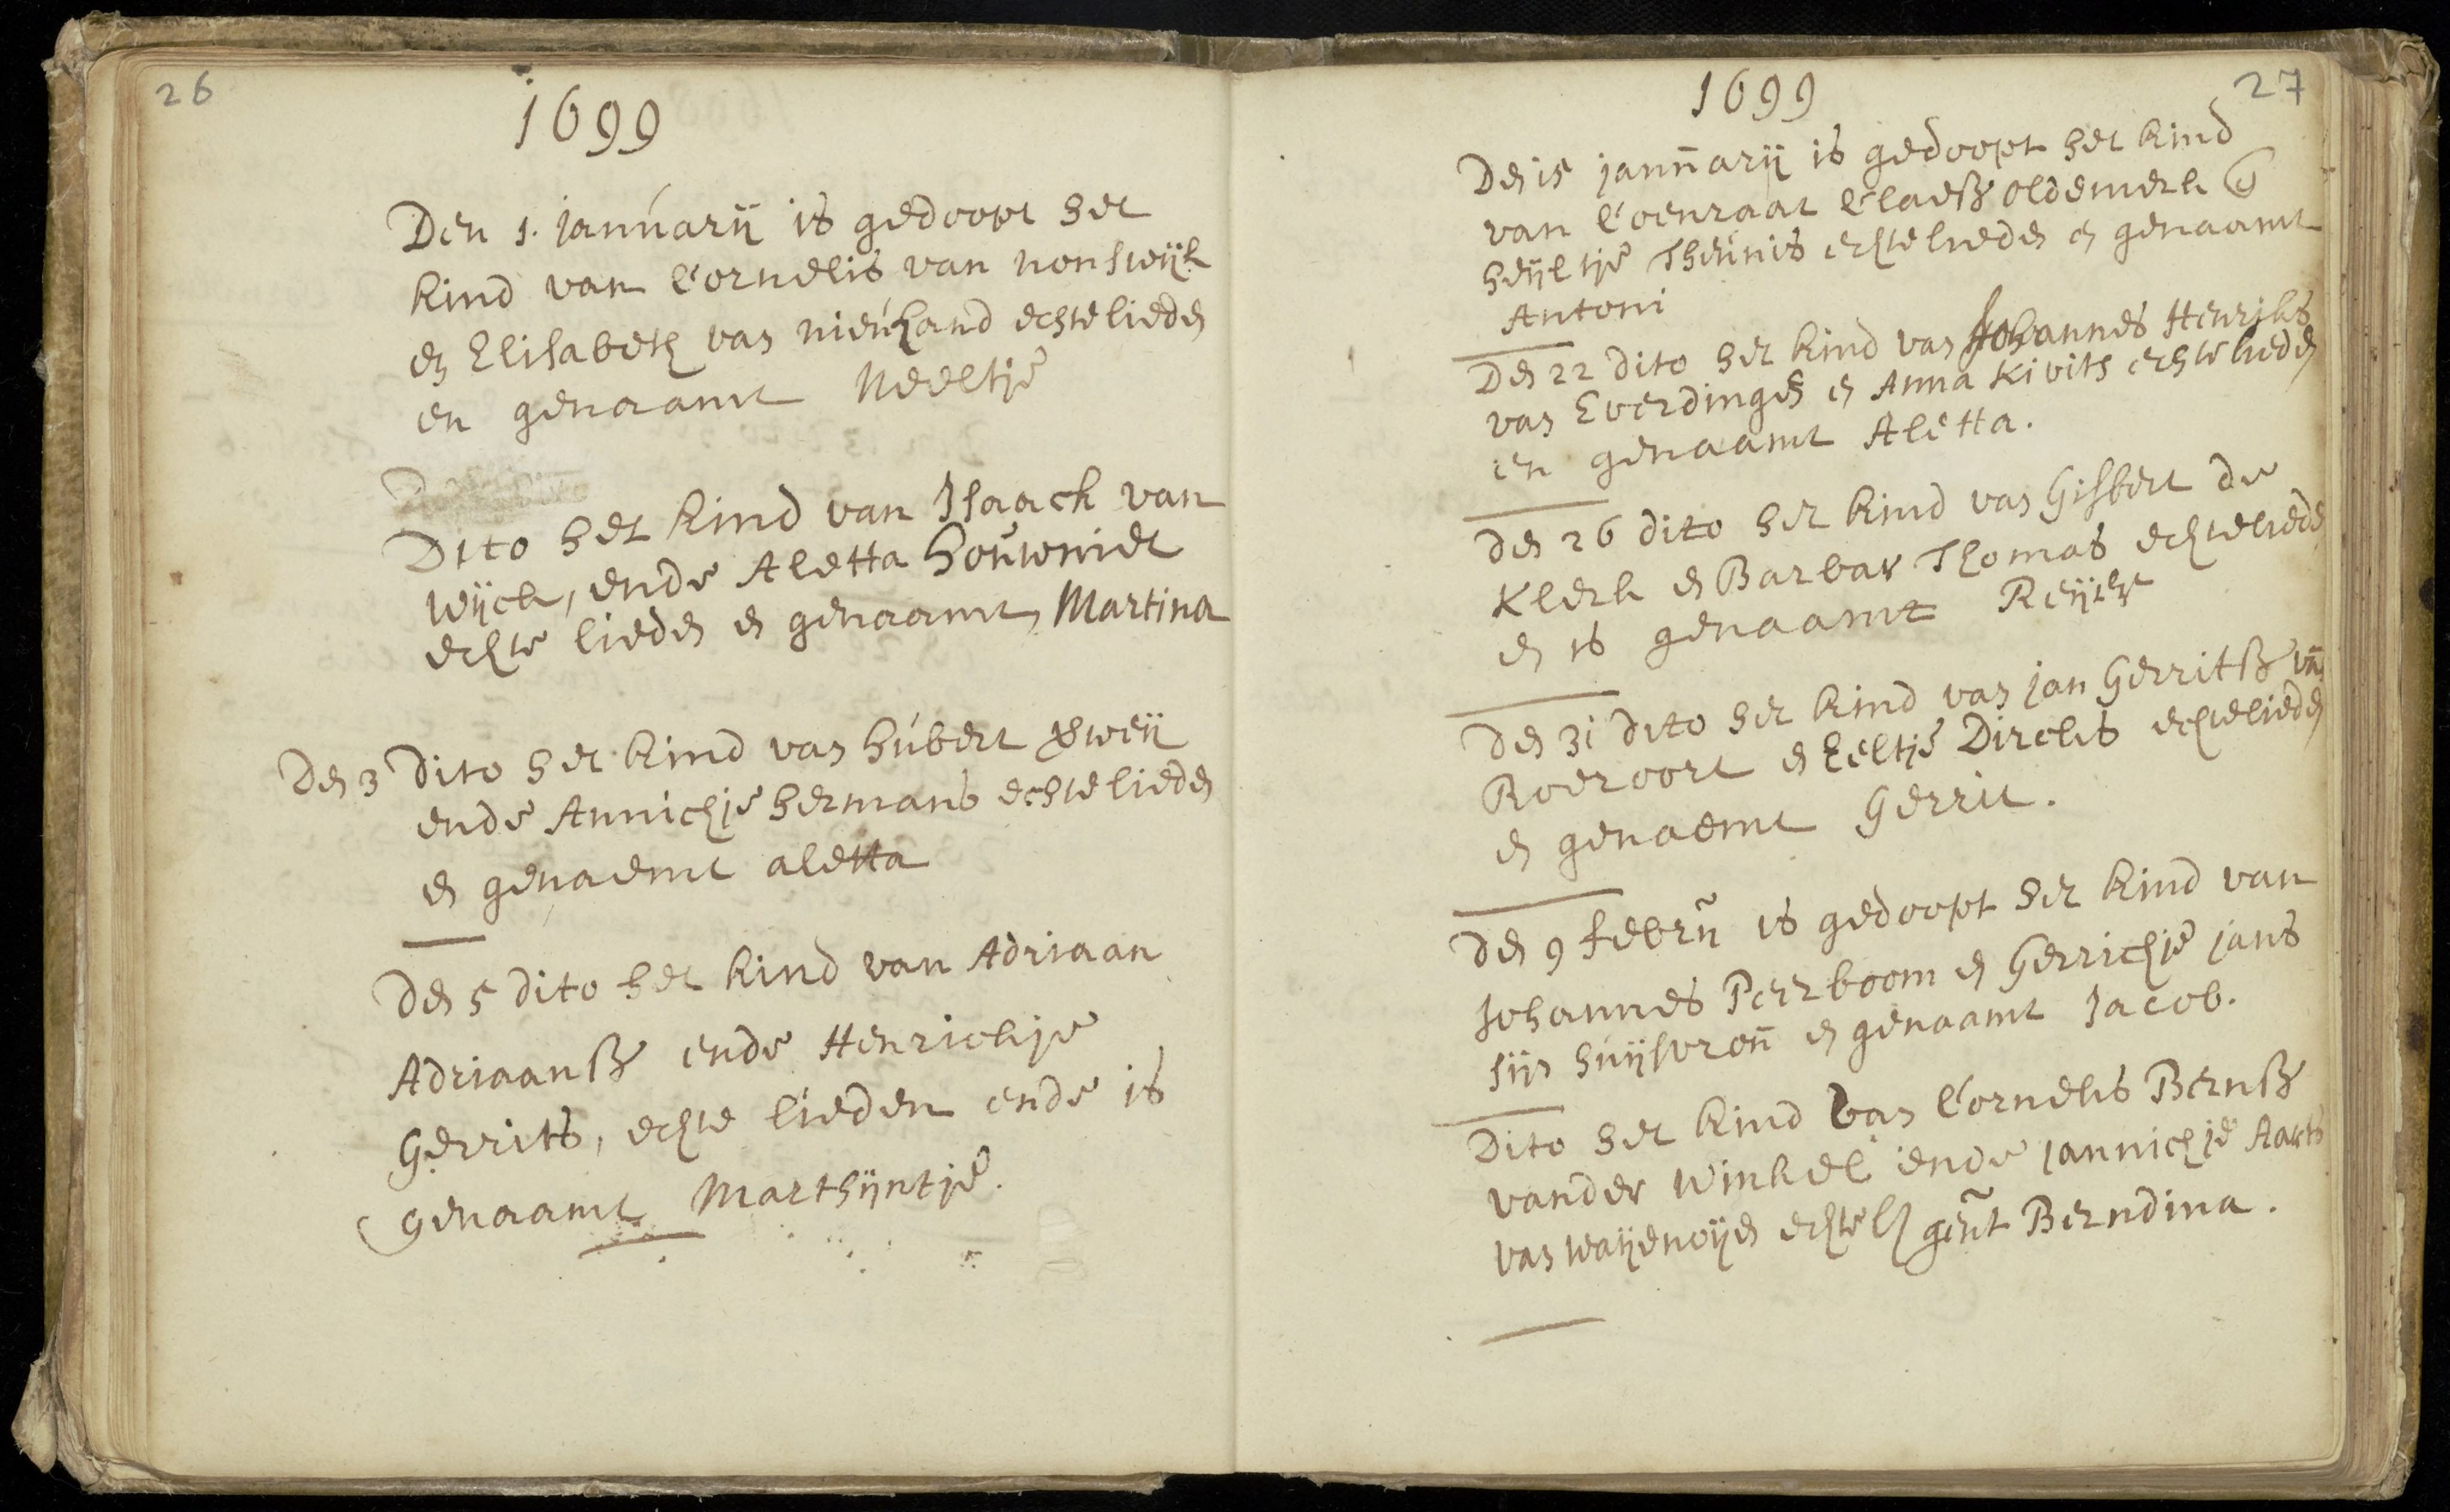 26
1699
Den 1. januarij is gedoopt het
kind van Cornelis van nonswijk
en Elisabeth van nieuland echteliede
en genaamt Neeltje
Dito het kind van Isaack van
wijck, ende Aletta houwmiet
echte lieden en genaamt, Martina
Den 3 Dito het kind van hubert
ende Annichje hermans echtelieden
en genaemt aletta
Den 5 dito het kind van Adriaan
Adriaansz ende Henrickje
Gerrits, echte lieden ende is
genaamt Marthijntje.
27
1699
Den 15 jannarij is gedoopt het kind
van Coenraat Claesz oldemerk en
heijltje Theunis echtelieden en genaamt
Antoni
Den 22 dito het kind van Johannes Henriks
van Everdingen en Anna Kivits echtelieden
en genaamt Aletta.
den 26 dito het kind van Gisbert de
Klerk en Barbar Thomas echtelieden
en is genaamt
den 31 dito het kind van jan Gerritsz van
Roeroort en Eeltje Dircks echtelieden
en genaemt Gerrit.
den 9 febru is gedoopt het kind van
Johannes Peerboom en Gerrichje jans
sijn huijsvrou en genaamt Jacob.
Dito het kind van Cornelis Bernsz
vander Winkel ende jannichje Aarts
van waijenoijen echtel gent Berndina.